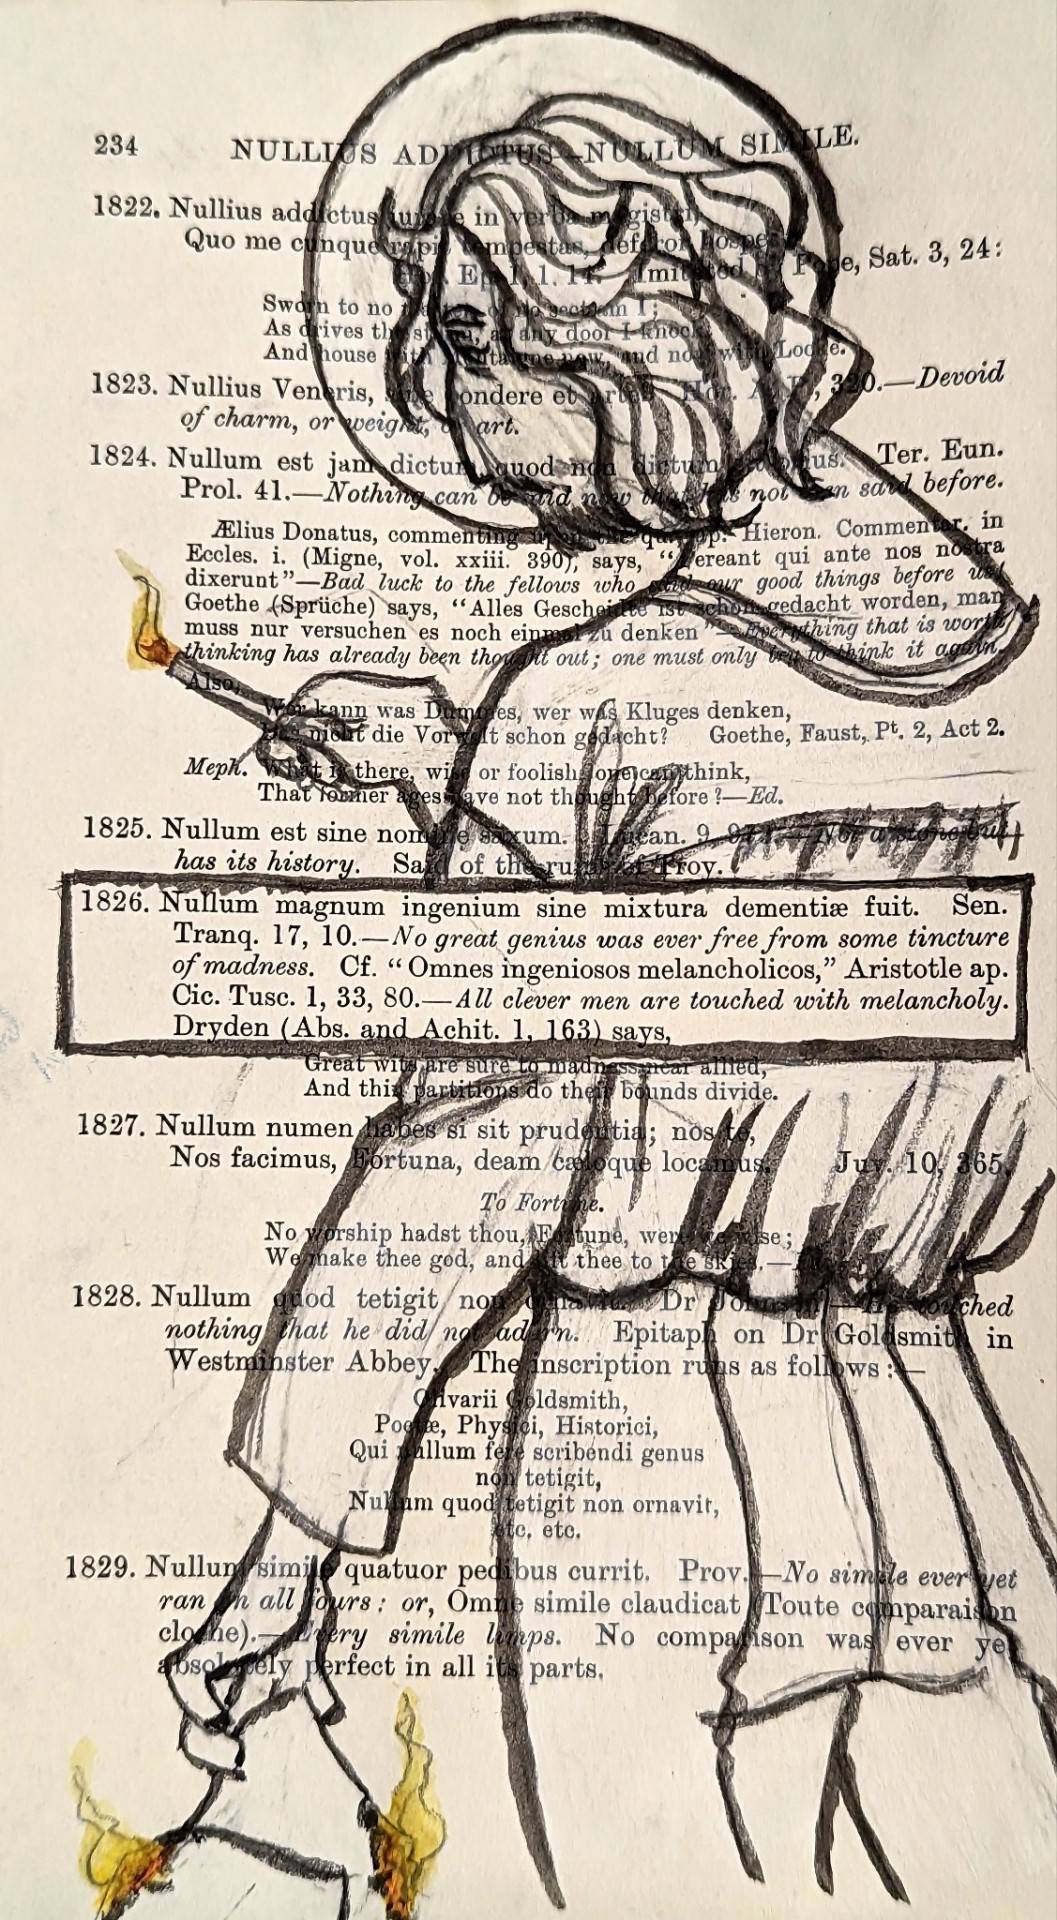 234 NULLIUS ADDICTUS—NULLUM SIMILE.
1822. Nullius addictus jurare in verba magistri,
Quo me cunque rapit tempestas, deferor hospes.
Hor. Ep. 1, 1, 14. Imitated by Pope, Sat. 3, 24:
Sworn to no of no sect am I;
As drives the storm, at any door I knock,
And house with Montaigne now, and now with Locke.
1823. Nullius Veneris, sine pondere et arte. Hor. A. P., 320.—Devoid
of charm, or weight, or art.
1824. Nullum est jam dictum, quod non dictum prius. Ter. Eun.
Prol. 41.—Nothing can be said now that has not been said before.
Ælius Donatus, commenting upon the Hieron. Commentar. in
Eccles. i. (Migne, vol. xxiii. 390), says, “Pereant qui ante nos nostra
dixerunt”—Bad luck to the fellows who said our good things before us!
Goethe (Sprüche) says, “Alles Gescheidte ist schon gedacht worden, man
muss nur versuchen es noch einmal zu denken”—Everything that is worth
thinking has already been thought out; one must only try to think it again.
Also,
Wer kann was Dummes, wer was Kluges denken,
Das nicht die Vorwelt schon gedacht? Goethe, Faust, Pt. 2, Act 2.
Meph. What is there, wise or foolish, one can think,
That former ages have not thought before?—Ed.
1825. Nullum est sine nomine saxum. Lucan. 9, —Not a stone but
has its history. Said of the ruins of Troy.
1826. Nullum magnum ingenium sine mixtura dementiæ fuit. Sen.
Tranq. 17, 10.—No great genius was ever free from some tincture
of madness. Cf. “Omnes ingeniosos melancholicos,” Aristotle ap.
Cic. Tusc. 1, 33, 80.—All clever men are touched with melancholy.
Dryden (Abs. and Achit. 1, 163) says,
Great wits are sure to madness near allied,
And thin partitions do their bounds divide.
1827. Nullum numen habes si sit prudentia; nos te,
Nos facimus, Fortuna, deam cæloque locamus. Juv. 10, 365.
To Fortune.
No worship hadst thou, Fortune, were we wise;
We make thee god, and lift thee to the skies.—
1828. Nullum quod tetigit non ornavit. Dr Johnson.—He touched
nothing that he did not adorn. Epitaph on Dr Goldsmith in
Westminster Abbey. The inscription runs as follows:—
Olivarii Goldsmith,
Poetæ, Physici, Historici,
Qui nullum fere scribendi genus
non tetigit,
Nullum quod tetigit non ornavit,
etc. etc.
1829. Nullum simile quatuor pedibus currit. Prov.—No simile ever yet
ran on all fours: or, Omne simile claudicat (Toute comparaison
cloche).—Every simile limps. No comparison was ever yet
absolutely perfect in all its parts.